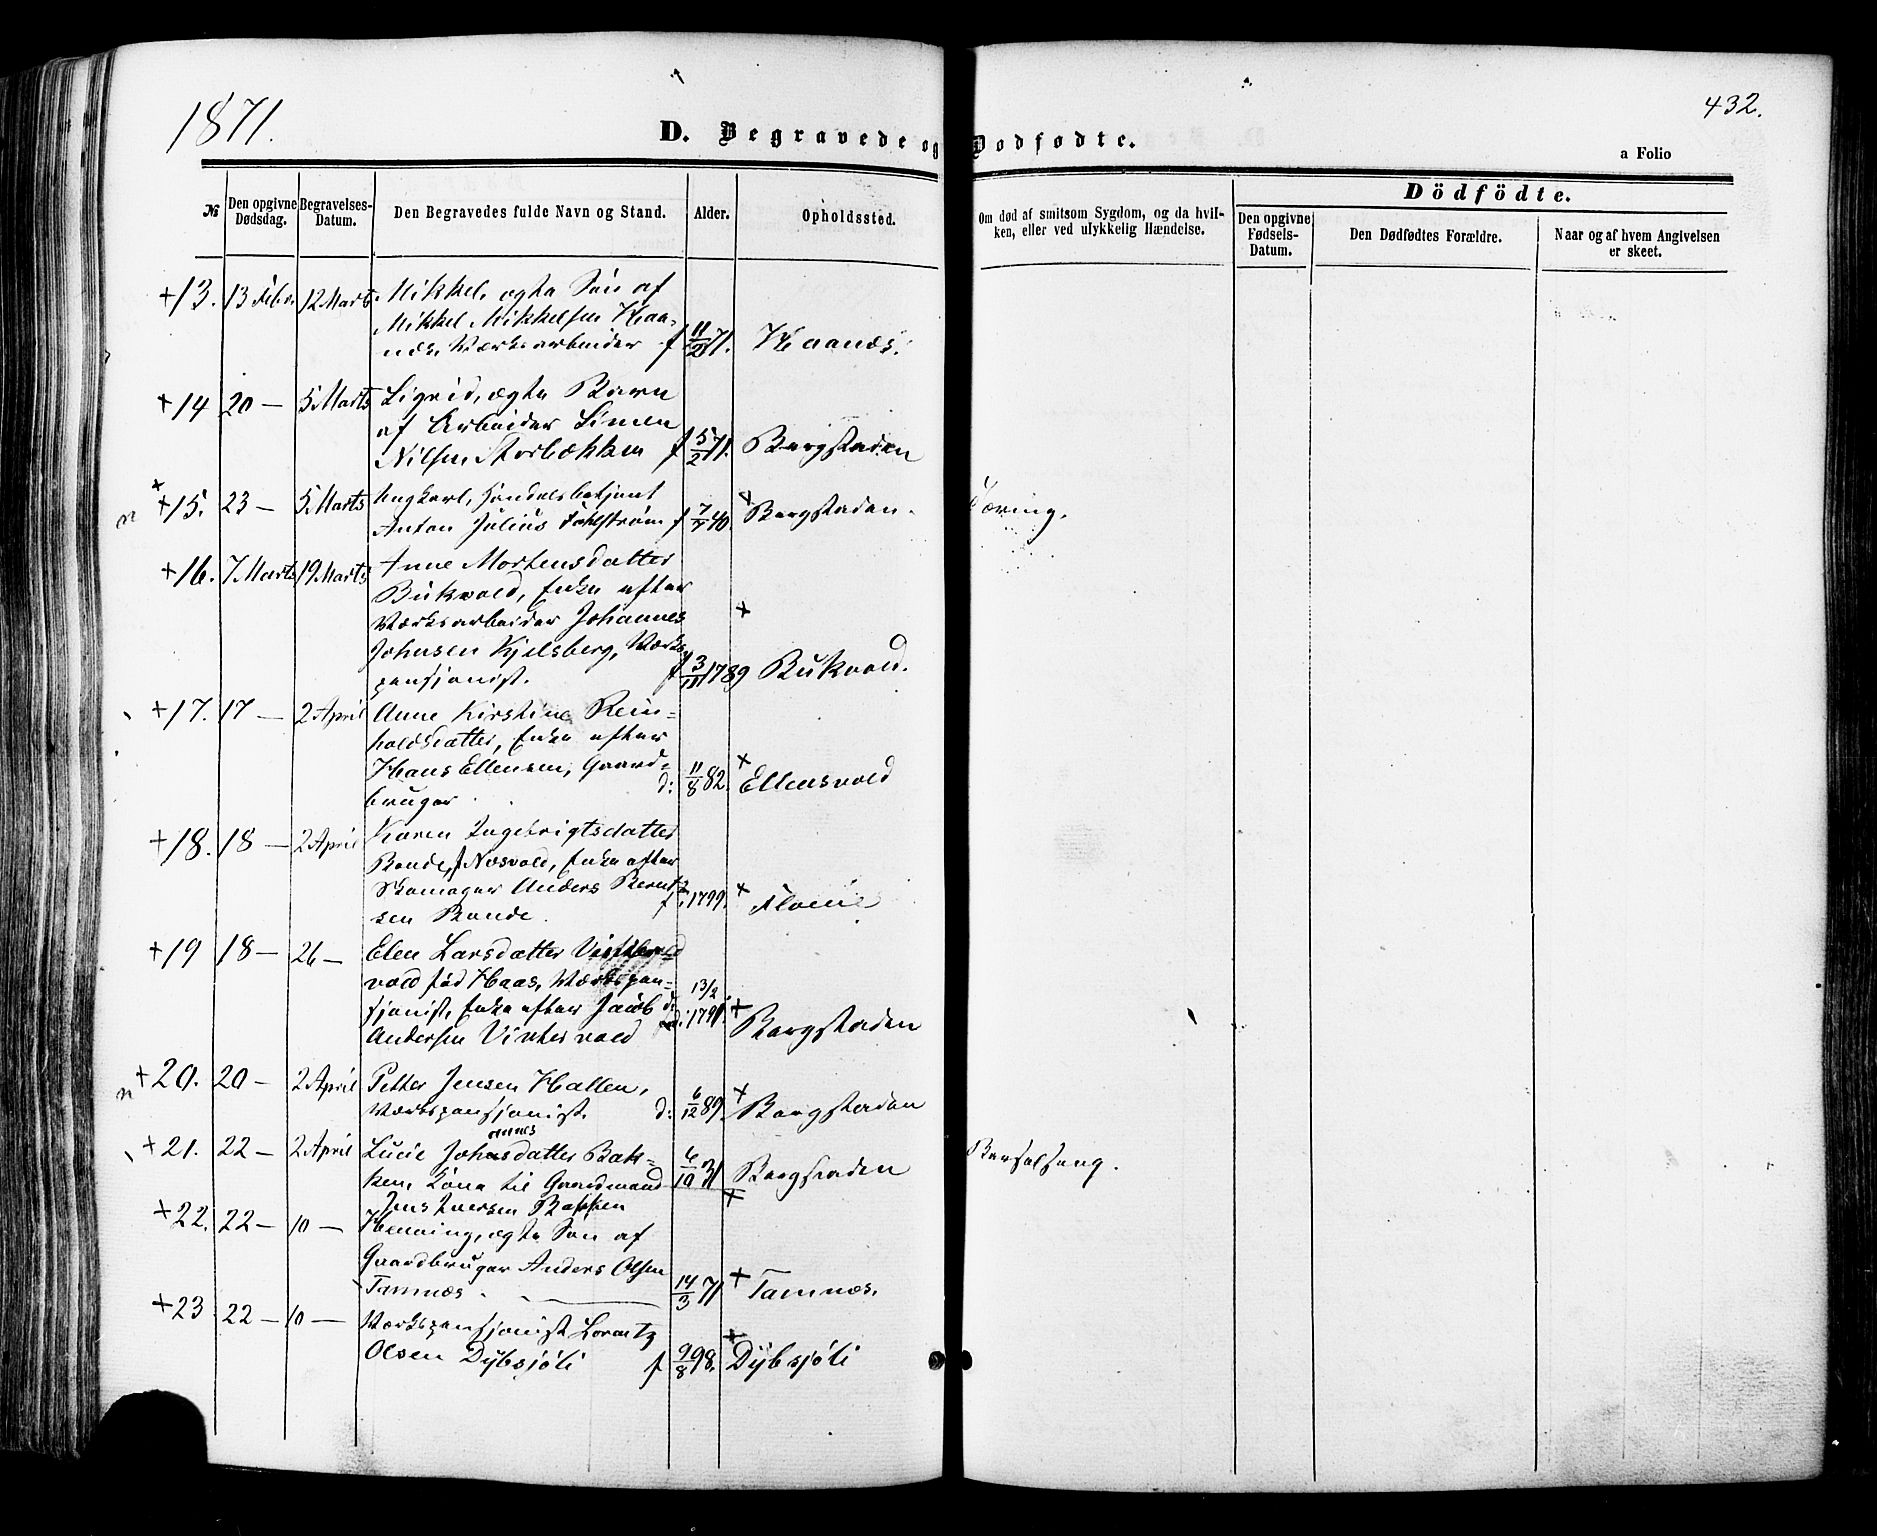 1871.
432.
D. Begravede og Dødfødte.
a Folio
Dödfödte.
№
Den opgivne Dødsdag.
Begravelses-Datum.
Den Begravedes fulde Navn og Stand.
Alder.
Opholdssted.
Om død af smitsom Sygdom, og da hvilken, eller ved ulykkelig Hændelse.
Den opgivne Fødsels-Datum.
Den Dødfødtes Forældre.
Naar og af hvem Angivelsen er skeet.
+13. 13 Febr. 12 Marts. Mikkel, ægte Søn af
Mikkel Mikkelsen Haa-
næs, Værksarbeider f 11/2 71. Haanæs.
+14 20 — 5 Marts Sigrid, ægte Barn
af Arbeider Simen
Nilsen Storbækken f 5/2 71. Bergstaden
+
n +15. 23 — 5 Marts Ungkarl, Handelsbetjent
Anton Julius Fahlstrøm f 7/7 40. + Bergstaden. Tæring.
+16. 7 Marts 19 Marts Anne Mortensdatter
Bukvold, Enke efter
Værksarbeider Johannes +
Johnsen Kjelsberg, Værks-
pensjonist. f 3/11 1789 Bukvold.
+17. 17 — 2 April Anne Kirstine Rein-
holdsdatter, Enke efter
Hans Ellensen, Gaard-
bruger d: 11/8 82. + Ellensvold
+18. 18 — 2 April Karen Ingebrigtsdatter
Bonde, f Næsvold, Enke efter
Skomager Anders Bernt-
sen Bonde. f. 1799. +
+19 18 — 26 — Elen Larsdatter
vold fød Haas, Værkspen-
sjonist, Enke efter Jacob d:
Andersen Vintervold 13/2 1791. + Bergstaden
n +20. 20 — 2 April Petter Jensen Hallen,
Værkspensjonist. d: 6/12 89. + Bergstaden
+21. 22 — 2 April Lucie Johannesdatter Bak-
ken, Kone til Gaardmand 6/10 31 Bergstaden Barselseng.
Jens Iversen Bakken +
+22. 22 — 10 — Henning, ægte Søn af
Gaardbruger Anders Olsen
Tamnæs. 14/3 71 + Tamnæs.
+23 22 — 10 — Værkspensjonist Lorentz
Olsen Dybsjøli f 9/8 98. + Dybsjøli